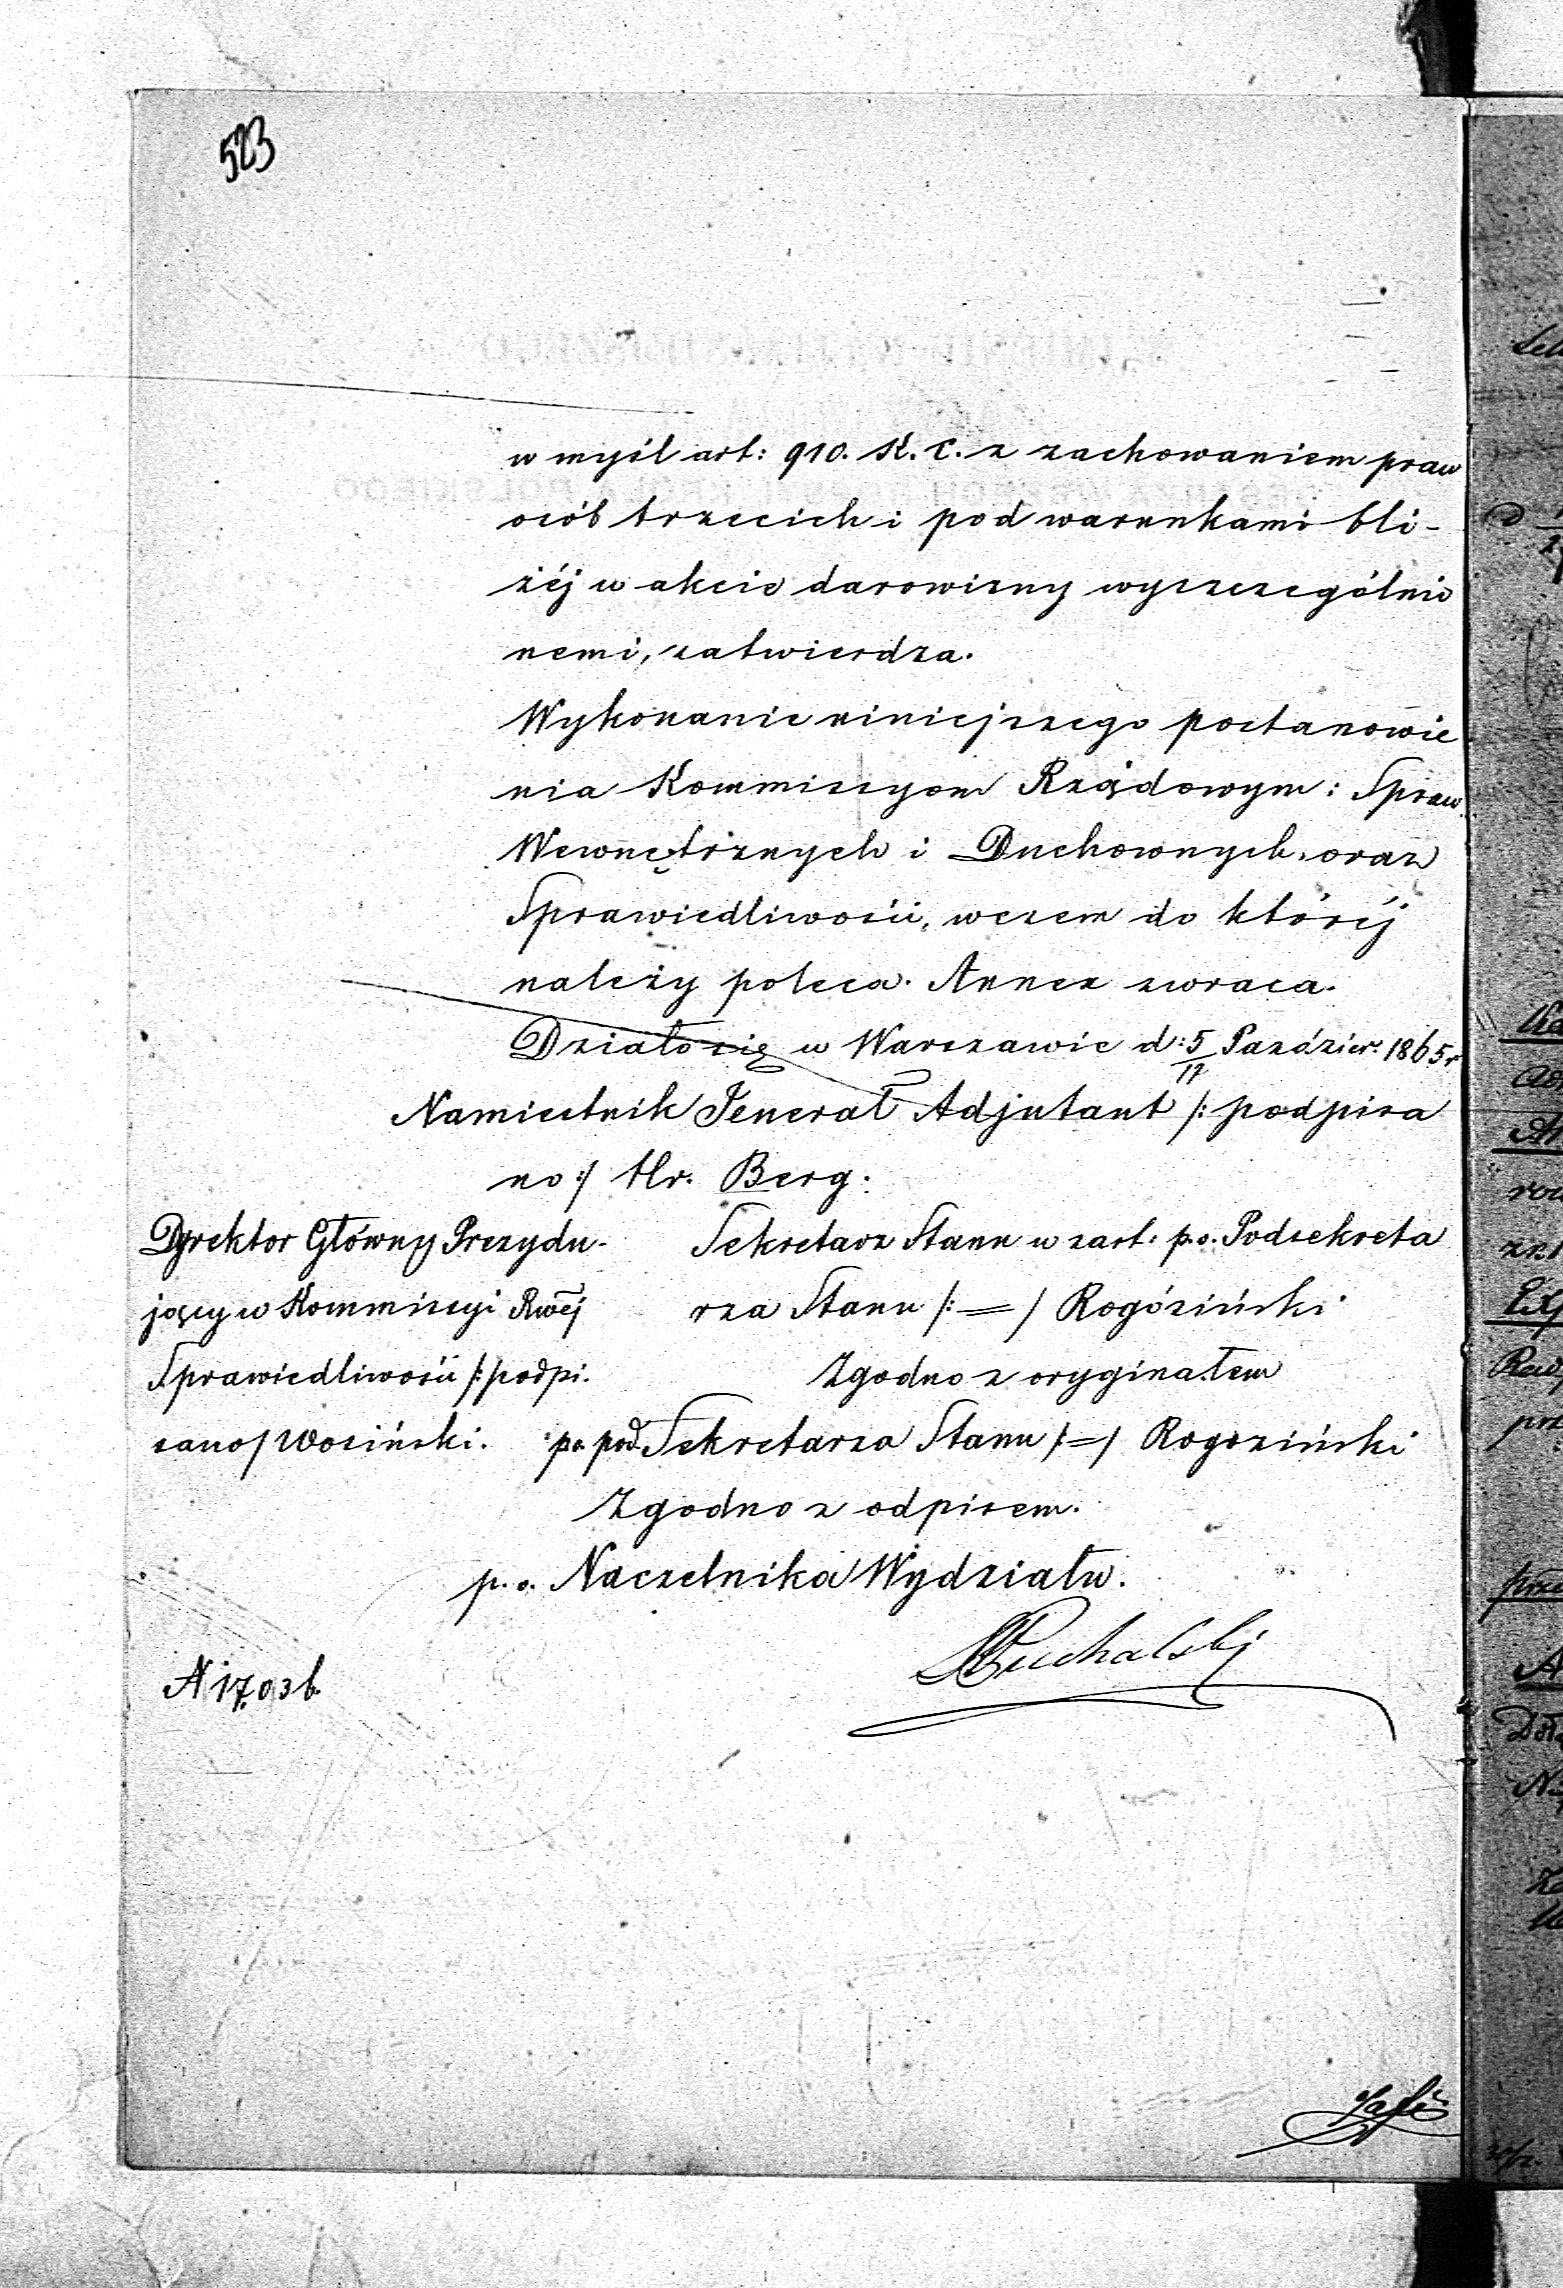 523
w myśl art: 910. K. C. z zachowaniem praw
osób trzecich i pod warunkami bli-
żéj w akcie darowizny wyszczególnio
nemi, zatwierdza.
Wykonanie niniejszego postanowie
nia Kommissyom Rządowym: Spraw
Wewnętrznych i Duchownych, oraz
Sprawiedliwości, wczem do któréj
należy poleca. Annex zwraca.
Działo się w Warszawie d: 5/17 Paździer: 1865 r
Namiestnik Jenerał Adjutant /: podpisa
no :/ Hr. Berg.
Dyrektor Główny Prezydu-
jący w Kommissyi Rwéj
Sprawiedliwości /: podpi.
sano / Wosiński.
Sekretarz Stanu w zast. p.o. Podsekreta
rza Stanu /: = / Rogóziński
Zgodno z oryginałem
p.o. pod. Sekretarza Stanu /: = / Rogoziński
Zgodno z odpisem.
p. o. Naczelnika Wydziału.
Puchalski
N 17,036.